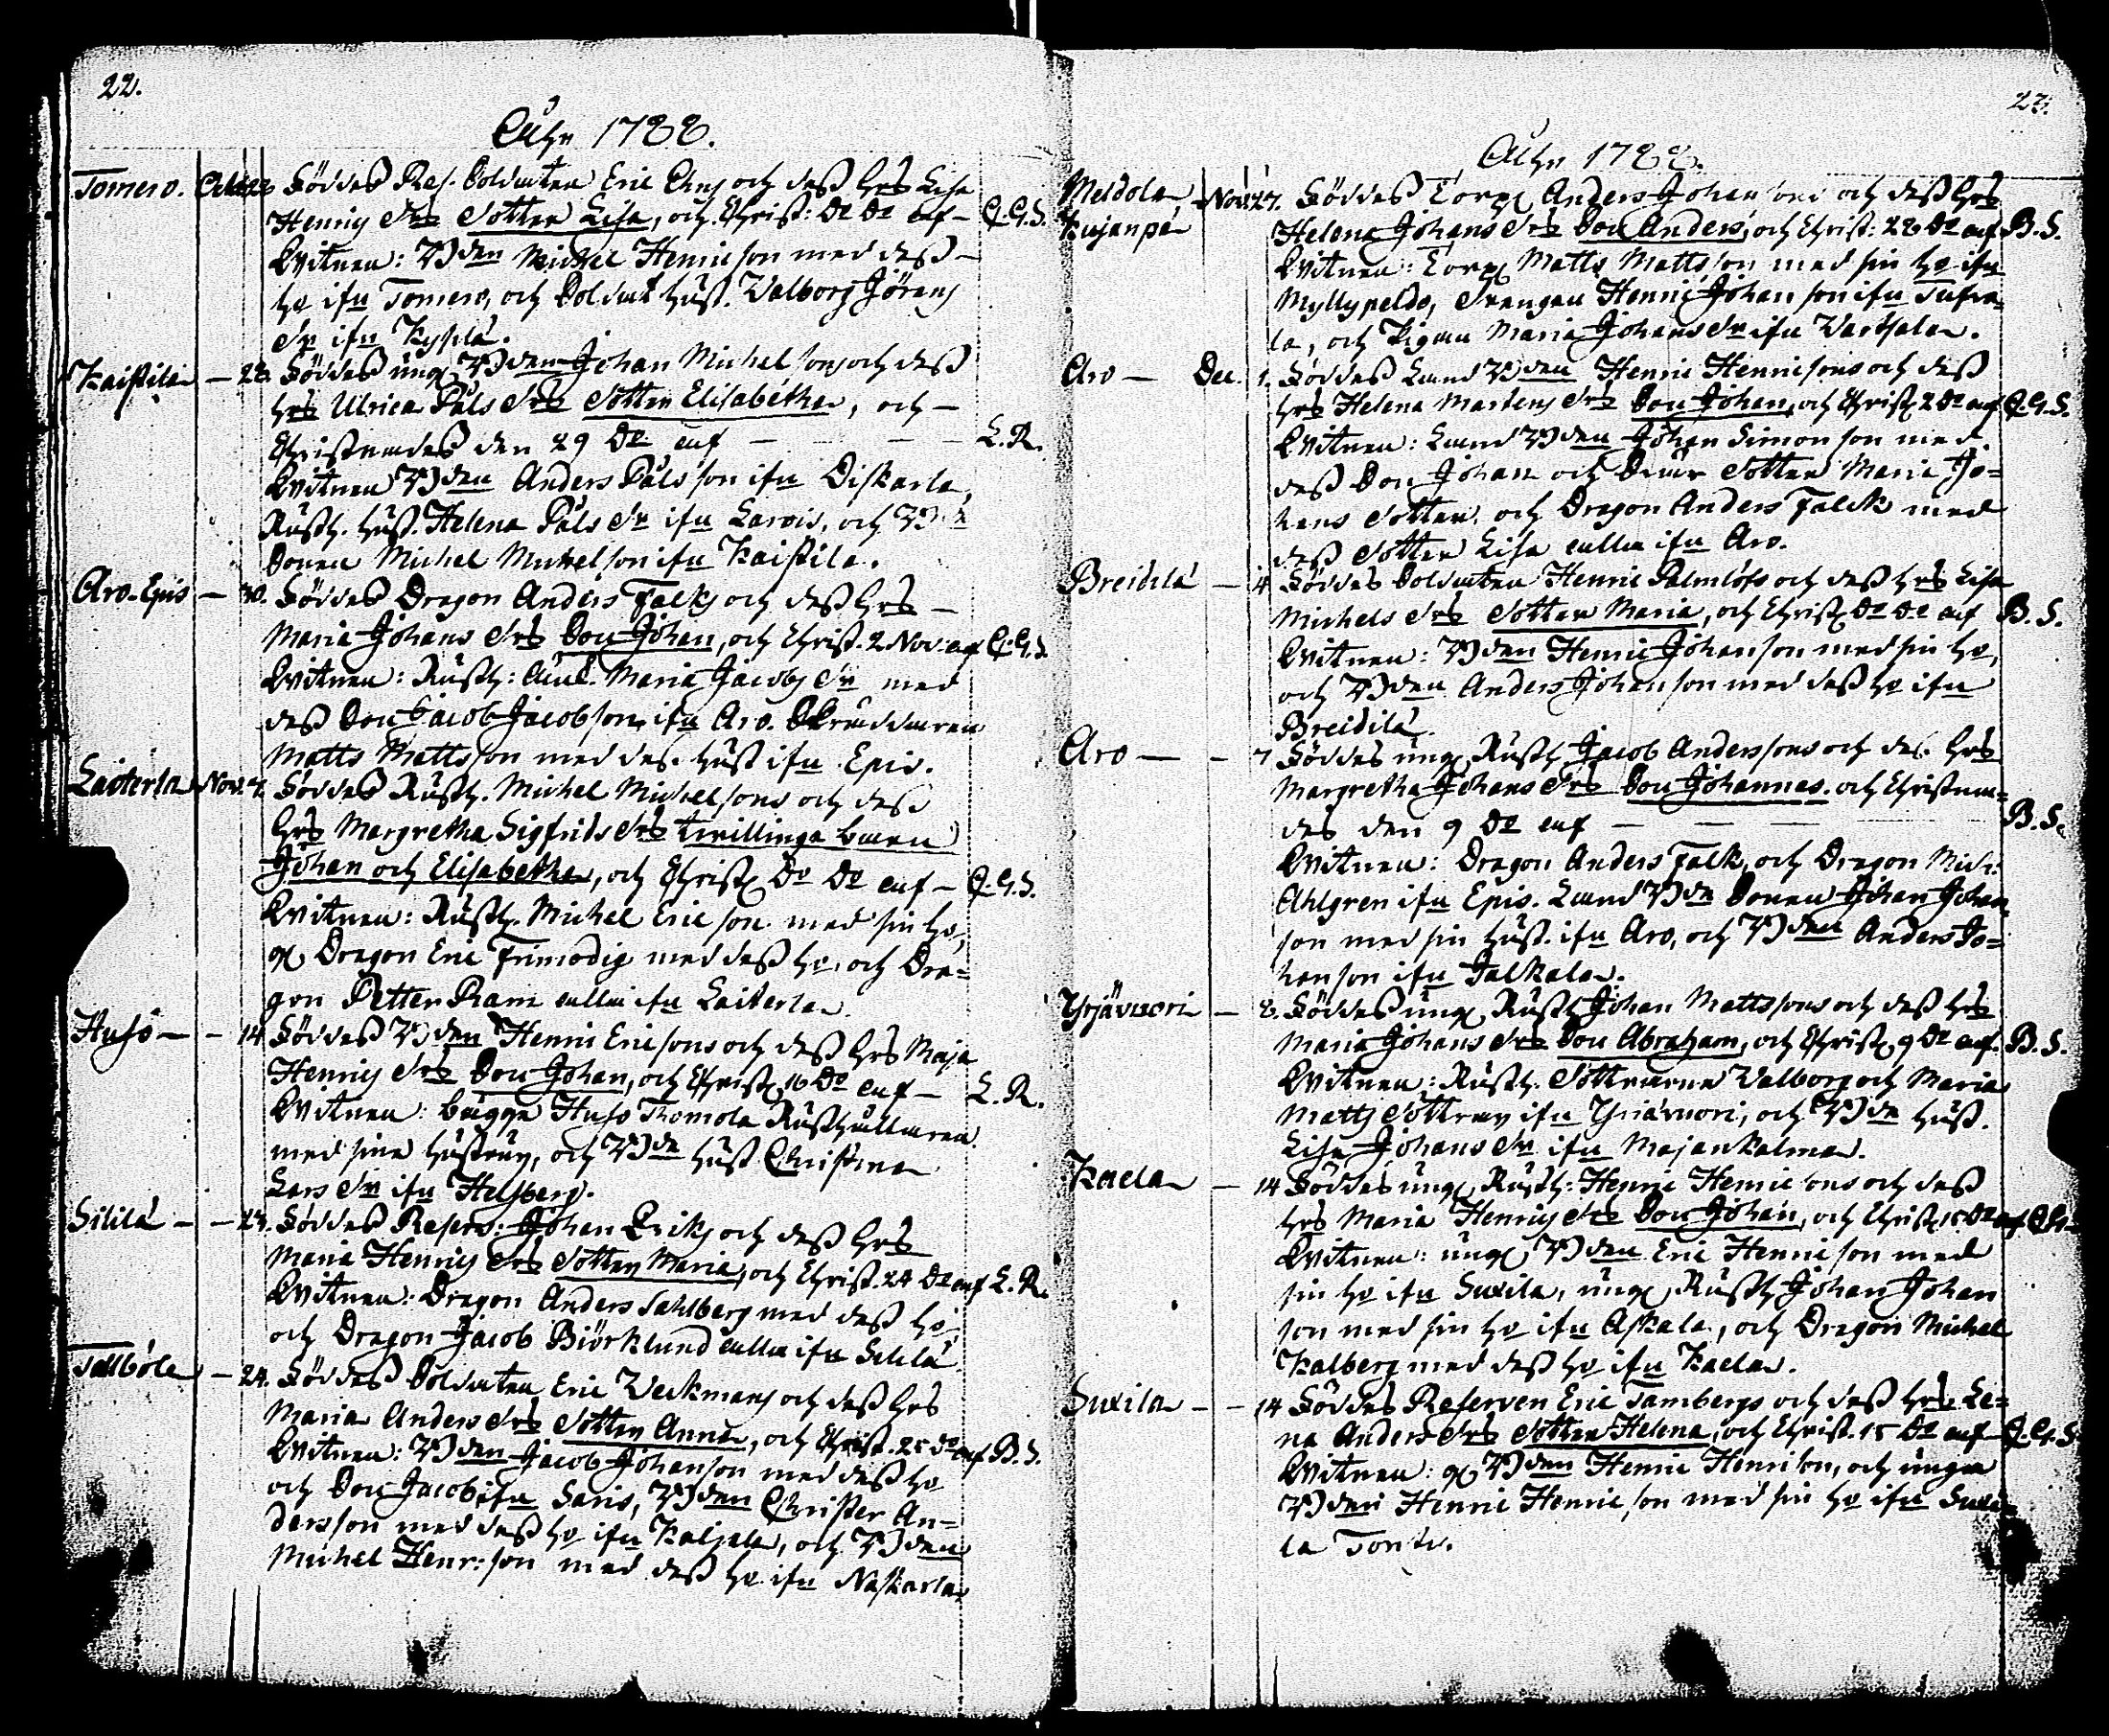 22.
Åhr 1788.
Tomero. Octob: 28. Föddes Res. Soldaten Eric Ekens och dess hrs Lisa
Henrics drs dotter Lisa, och Christ: do do af - C.G.S.
Witnen: Bden Michel Henricson med dess -
ho ifrn Tomero, och Soldat hust. Walborg Jörens
dr ifrn Kyhlä.
Kaistila - 28. Föddes ung Bden Johan Michelsons och dess
hrs Ulrica Påls drs dotter Elisabetha, och -
Christnades den 29 do af - - - L.R.
Witnen Bden Anders Pålsson ifrn Diskarla,
Rusth. hust. Helena Påls dr ifrn Larvis, och Bde
Sonen Michel Michelson ifrn Kaistila.
Aro. Epis - 30. Föddes Dragon Anders Falks och dess hrs -
Maria Johans drs Son Johan, och Christ. 2 Nov: af C.G.S.
Witnen: Rusth: Enk. Maria Jacobs dr med
dess Son Jacob Jacobson ifrn Aro. Skräddaren
Matts Mattsson med des hust ifrn Epis.
Laiterla Nov: 7. Föddes Rusth. Michel Michelsons och dess
hrs Margretha Sigfrids drs twillinga barn
Johan och Elisabetha, och Christ do do af - C.G.S.
Witnen: Rusth. Michel Ericson med sin ho,
Dragon Eric Frimodig med dess ho, och Dra=
gon Petter Ram alla ifrn Laiterla.
Huso - - 14 Föddes Bden Henric Ericsons och dess hrs Maja
Henrics drs Son Johan, och Christ 16 do af - L.R.
Witnen: bägge Huso Tromola Rusthållaren
med sina hustrur, och Bde hust. Christina
Lars dr ifrn Helsberg.
Sililä - - 23. Föddes Reserv: Johan Eriks och dess hrs
Maria Henrics drs dotter Maria, och Christ. 24 do af L.R.
Witnen: Dragon Anders Sahlberg med dess ho,
och Dragon Jacob Biörklund alla ifrn Sililä
Tallböle - 24. Föddes Soldaten Eric Weckmans och dess hrs
Maria Anders drs dotter Anna, och Christ. 25 do af B.S.
Witnen: Bden Jacob Johanson med dess ho
och Son Jacob ifrn Saris, Bden Christer An=
dersson med dess ho ifrn Kaljala, och Bden
Michel Henr:son med dess ho ifrn Naskarla
23.
Åhr 1788.
Meidola Nov: 27. Föddes Torp Anders Johansons och dess hrs
Kujanpä Helena Johans drs Son Anders, och Christ: 28 do af B.S.
Witnen: Torp Matts Mattsson med sin ho ifrn
Myllypeldo, Drengen Henric Johanson ifrn
la, och Pigan Maria Johans dr ifrn Wartsala.
Aro - Dec. 1. Föddes Land Bden Henric Henricsons och dess
hrs Helena Mårtens drs Son Johan, och Christ 2 do af C.G.S.
Witnen: Land Bden Johan Simonson med
dess Son Johan och dotter Maria Jo=
hans dotter, och Dragon Anders Falck med
dess dotter Lisa alla ifrn Aro.
Breidilä - 4. Föddes Soldaten Henric Palmlöfs och dess hrs Lisa
Michels drs dotter Maria, och Christ do do af B.S.
Witnen: Bden Henric Johanson med sin ho,
och Bden Anders Johanson med dess ho ifrn
Breidilä.
Aro - - 7 Föddes ung Rusth Jacob Anderssons och des hrs
Margretha Johans drs Son Johannes, och Christna=
des den 9 do af - - - B.S.
Witnen: Dragon Anders Falk, och Dragon Mich:
Ahlgren ifrn Epis. Land Bde Sonen Johan Johan
son med sin hust. ifrn Aro, och Bden Anders Jo=
hanson ifrn Jalkala.
Yrjävuori - 8. Föddes ung Rusth Johan Mattssons och dess hrs
Maria Johans drs Son Abraham, och Christ 9 do af B.S.
Witnen: Rusth. Döttrarna Walborg och Maria
Matts Döttrar ifrn Yrjävuori, och Bde hust.
Lisa Johans dr ifrn Majankalma.
Kaela - 14 Föddes ung Rusth: Henric Henricsons och dess
hrs Maria Henrics drs Son Johan, och Christ 15 do af
Witnen: ung Bden Eric Henricson med
sin ho ifrn Suxila, ung Rusth Johan Johan
son med sin ho ifrn Askala, och Dragon Michel
Kalberg med dess ho ifrn Kaela.
Suxila - - 14 Föddes Reserven Eric Tambergs och dess hrs Le=
na Anders drs dotter Helena, och Christ. 15 do af C.G.S.
Witnen: Bden Henric Henricson, och unga
Bden Henric Henricson med sin ho ifrn Suxi=
la